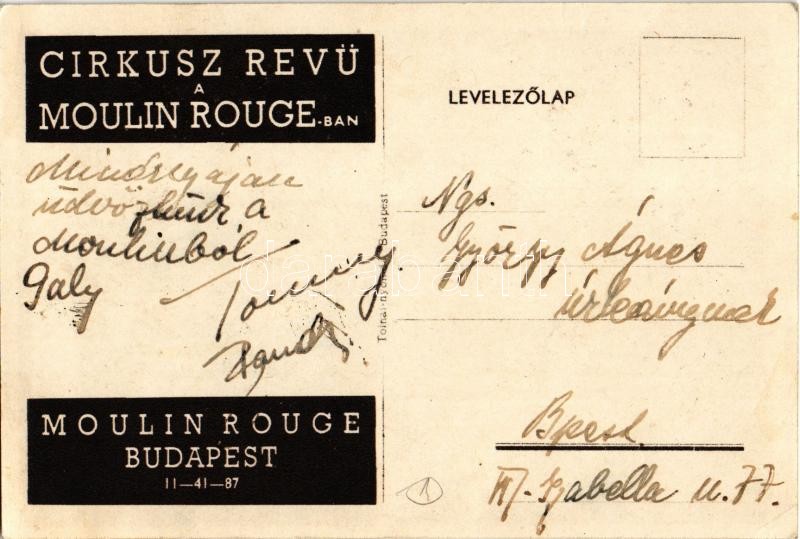 CIRKUSZ REVÜ
A
MOULIN ROUGE-BAN
Mindnyájan
üdvözlünk a
Moulinból
Galy
Tommy
LEVELEZŐLAP
Budapest
Ngs.
György Ágnes
úrleánynak
Bpest.
Izabella u. 77.
MOULIN ROUGE
BUDAPEST
11—41—87